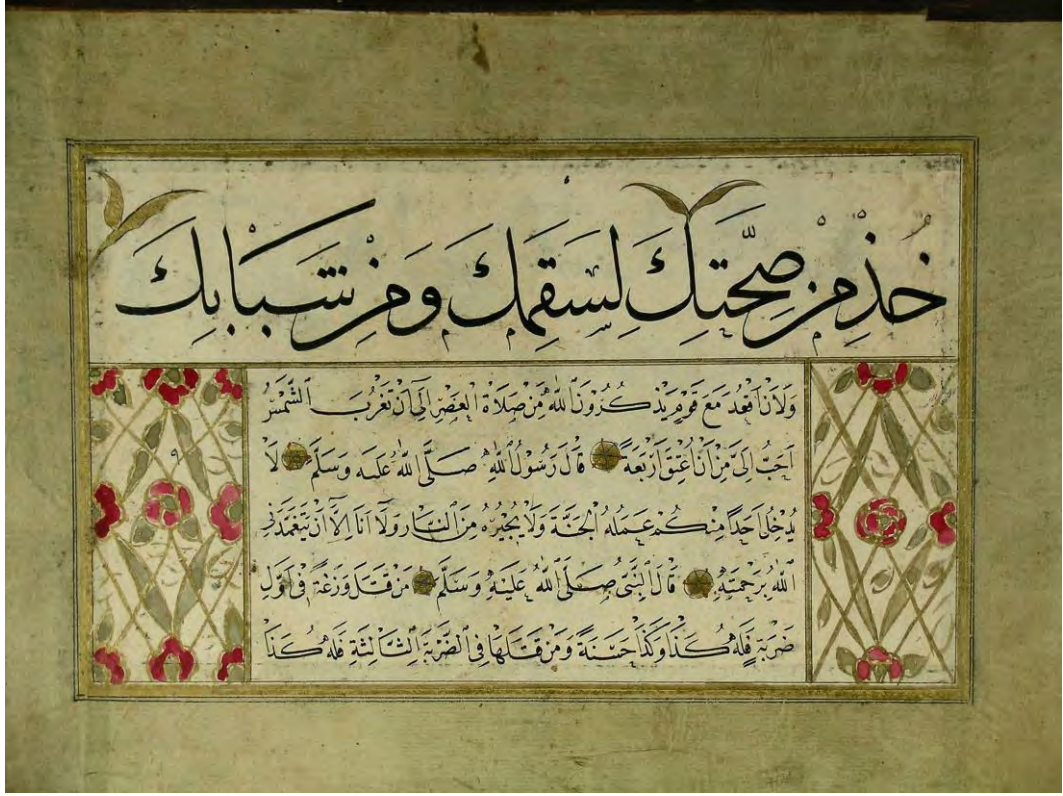 خُذْ مِنْ صِحَّتِكَ لِسَقَمِكَ وَمِنْ شَبَابِكَ
وَلَاَنْ اَقْعُدَ مَعَ قَوْمٍ يَذْكُرُونَ اللّٰهَ مِنْ صَلَاةِ الْعَصْرِ اِلَى اَنْ تَغْرُبَ الشَّمْسُ
اَحَبُّ اِلَىَّ مِنْ اَنْ اُعْتِقَ اَرْبَعَةً قَالَ رَسُولُ اللّٰهِ صَلَّى اللّٰهُ عَلَيْهِ وَسَلَّمَ لَا
يُدْخِلُ اَحَدًا مِنْكُمْ عَمَلُهُ الْجَنَّةَ وَلَا يُجِيْرُهُ مِنَ النَّارِ وَلَا اَنَا اِلَّا اَنْ يَتَغَمَّدَنِى
اللّٰهُ بِرَحْمَتِهِ قَالَ النَّبِىُّ صَلَّى اللّٰهُ عَلَيْهِ وَسَلَّمَ مَنْ قَتَلَ وَزَغَةً فِى اَوَّلِ
ضَرْبَةٍ فَلَهُ كَذَا وَكَذَا حَسَنَةً وَمَنْ قَتَلَهَا فِى الضَّرْبَةِ الثَّالِثَةِ فَلَهُ كَذَا
٩